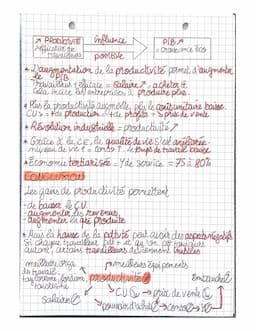 ↗ Productivité influence PIB ↗
efficacité des travailleurs positive = croissance éco
* L'augmentation de la productivité permet d'augmenter
le PIB
Travailleurs + efficace = salaire ↗ = achetent +
Cela incite les entreprises à produire plus
* Plus la productivité augmente, plus le coût unitaire baisse
CU ↘ = + de production = + de profits = ↘ prix de vente
* Révolution industrielle = productivité ↗
* Grâce à la CE, la qualité de vie s'est améliorée
niveau de vie ↗ = conso ↗ = temps de travail baisse
* Économie tertiarisée = de service = 75 à 80%
CONCLUSION
Les gains de productivité permettent
- de baisser le CU
- augmenter les revenus
- augmenter la production
* Mais la hausse de la peut avoir des aspects négatifs
Si chaque travailleur
autant, certains travailleurs deviennent inutiles
meilleure orga du travail : meilleurs équipements
taylorisme, fordisme, productivité embauche
salaire CU → prix de vente
pouvoir d'achat → conso →